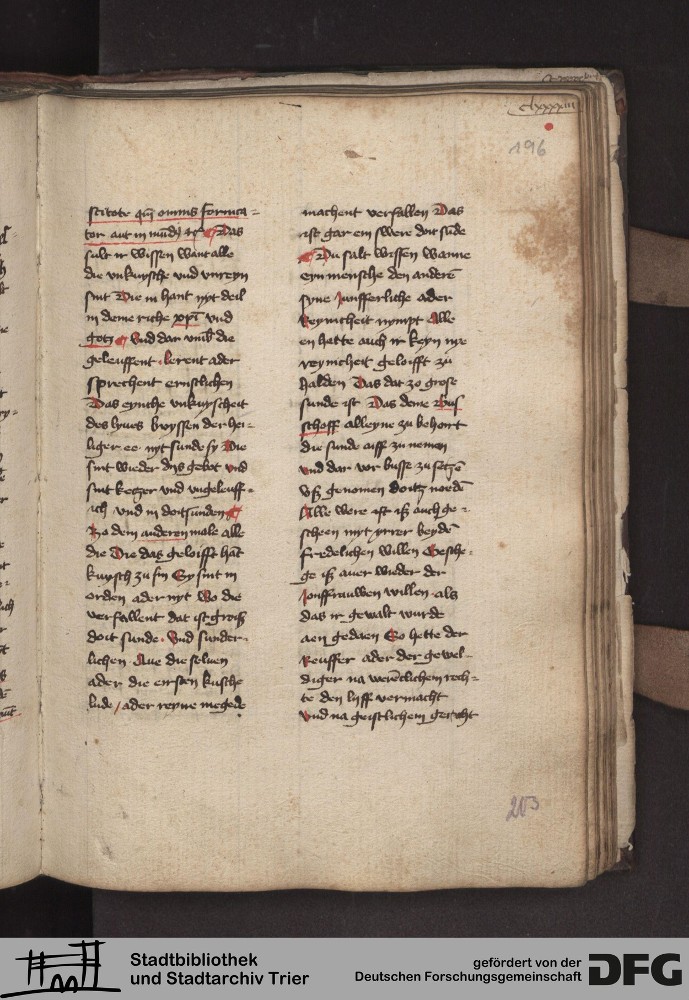 clxxxxiii
196
scitote qm̄ omnis fornica=
tor aut in mūdꝯ ⁊cͣ Das
sult ir wissen want alle
die vnkuysche vnd vnreyn
sint Die in hant nyt deil
in deme riche xp̄i vnd
gotz Vnd dar vmb die
geleuffent · lerent ader
sprechent ernstlichen
Das eyniche vnkuyscheit
des lyues buyssen der hei=
liger ee nyt sunde sy Die
sint wieder dņs gebot vnd
sint ketzer vnd vngeleuff=
ich vnd in doitsunden
Zo dem anderen male alle
die Die das geloifft hāt
kuysch zu sin Sy sint in
orden ader nyt Wo die
verfallent dat ist groiß
doit sunde · Vnd sunder=
lichen · Aue die seluen
ader die eirsten kusche
lude / ader reyne megede
machent verfallen Das
ist gar ein swere doit sūde
Du salt wissen wanne
eyn mensche den anderē
syne Junfferliche ader
Reynicheit nympt Alle
en hette auch ir keyn nye
reynicheit geloifft zū
halden Das dat zo grose
sunde ist Das deme Bus
schoff alleyne zu behoirt
die sunde uiff zu nemen
vnd dar vor busse zu setzē
vß genomen doitz noedē
Alle were ist iß auch ge=
scheen myt yrrer beydē
fredelichen willen Gesche=
ge iß auer wieder der
Jonffrauwen willen · als
das ir gewalt wurde
aen gedaen So hette der
Reuffer ader der gewel=
diger na werētlichem rech=
te den lyff vermacht
vnd na geistlichem gericht
203
Stadtbibliothek
und Stadtarchiv Trier
gefördert von der
Deutschen Forschungsgemeinschaft
DFG